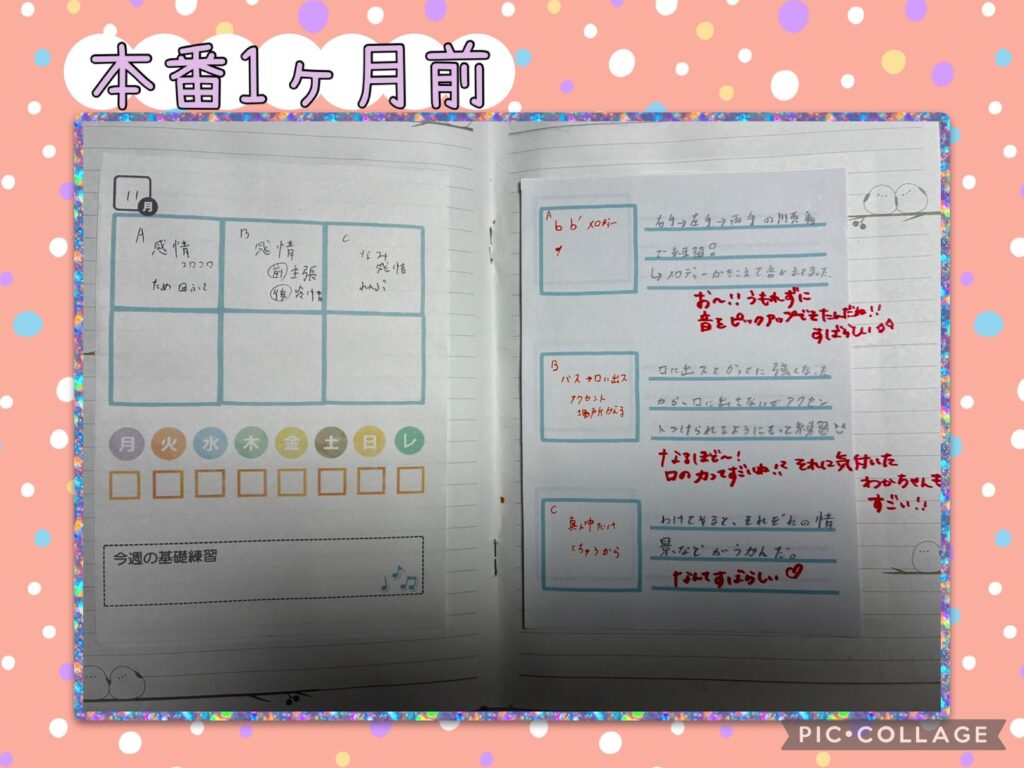 本番1ヶ月前
11月
A
感情
コロコロ
B
感情
前 主張
C
なみ
感情
月 火 水 木 金 土 日 レ
今週の基礎練習
A
b b' メロディー
右手→左手→両手の順番
で練習!!
↳メロディーがきこえて音が
お〜!!うもれずに
音をピックアップできたんだね!!
すばらしい
B
バス→口に出ス
アクセント
場所かえる
口に出スとかってに強くなった
から、口に出さないでアクセン
トつけられるようにもって練習
なるほど〜!
口の力ってすごいね!!それに気付いた
わかちゃんも
すごい!!
C
真ん中だけ
とちゅうから
わけてやると、それぞれの情
景などがうかんだ。
なんてすばらしい♡
PIC•COLLAGE